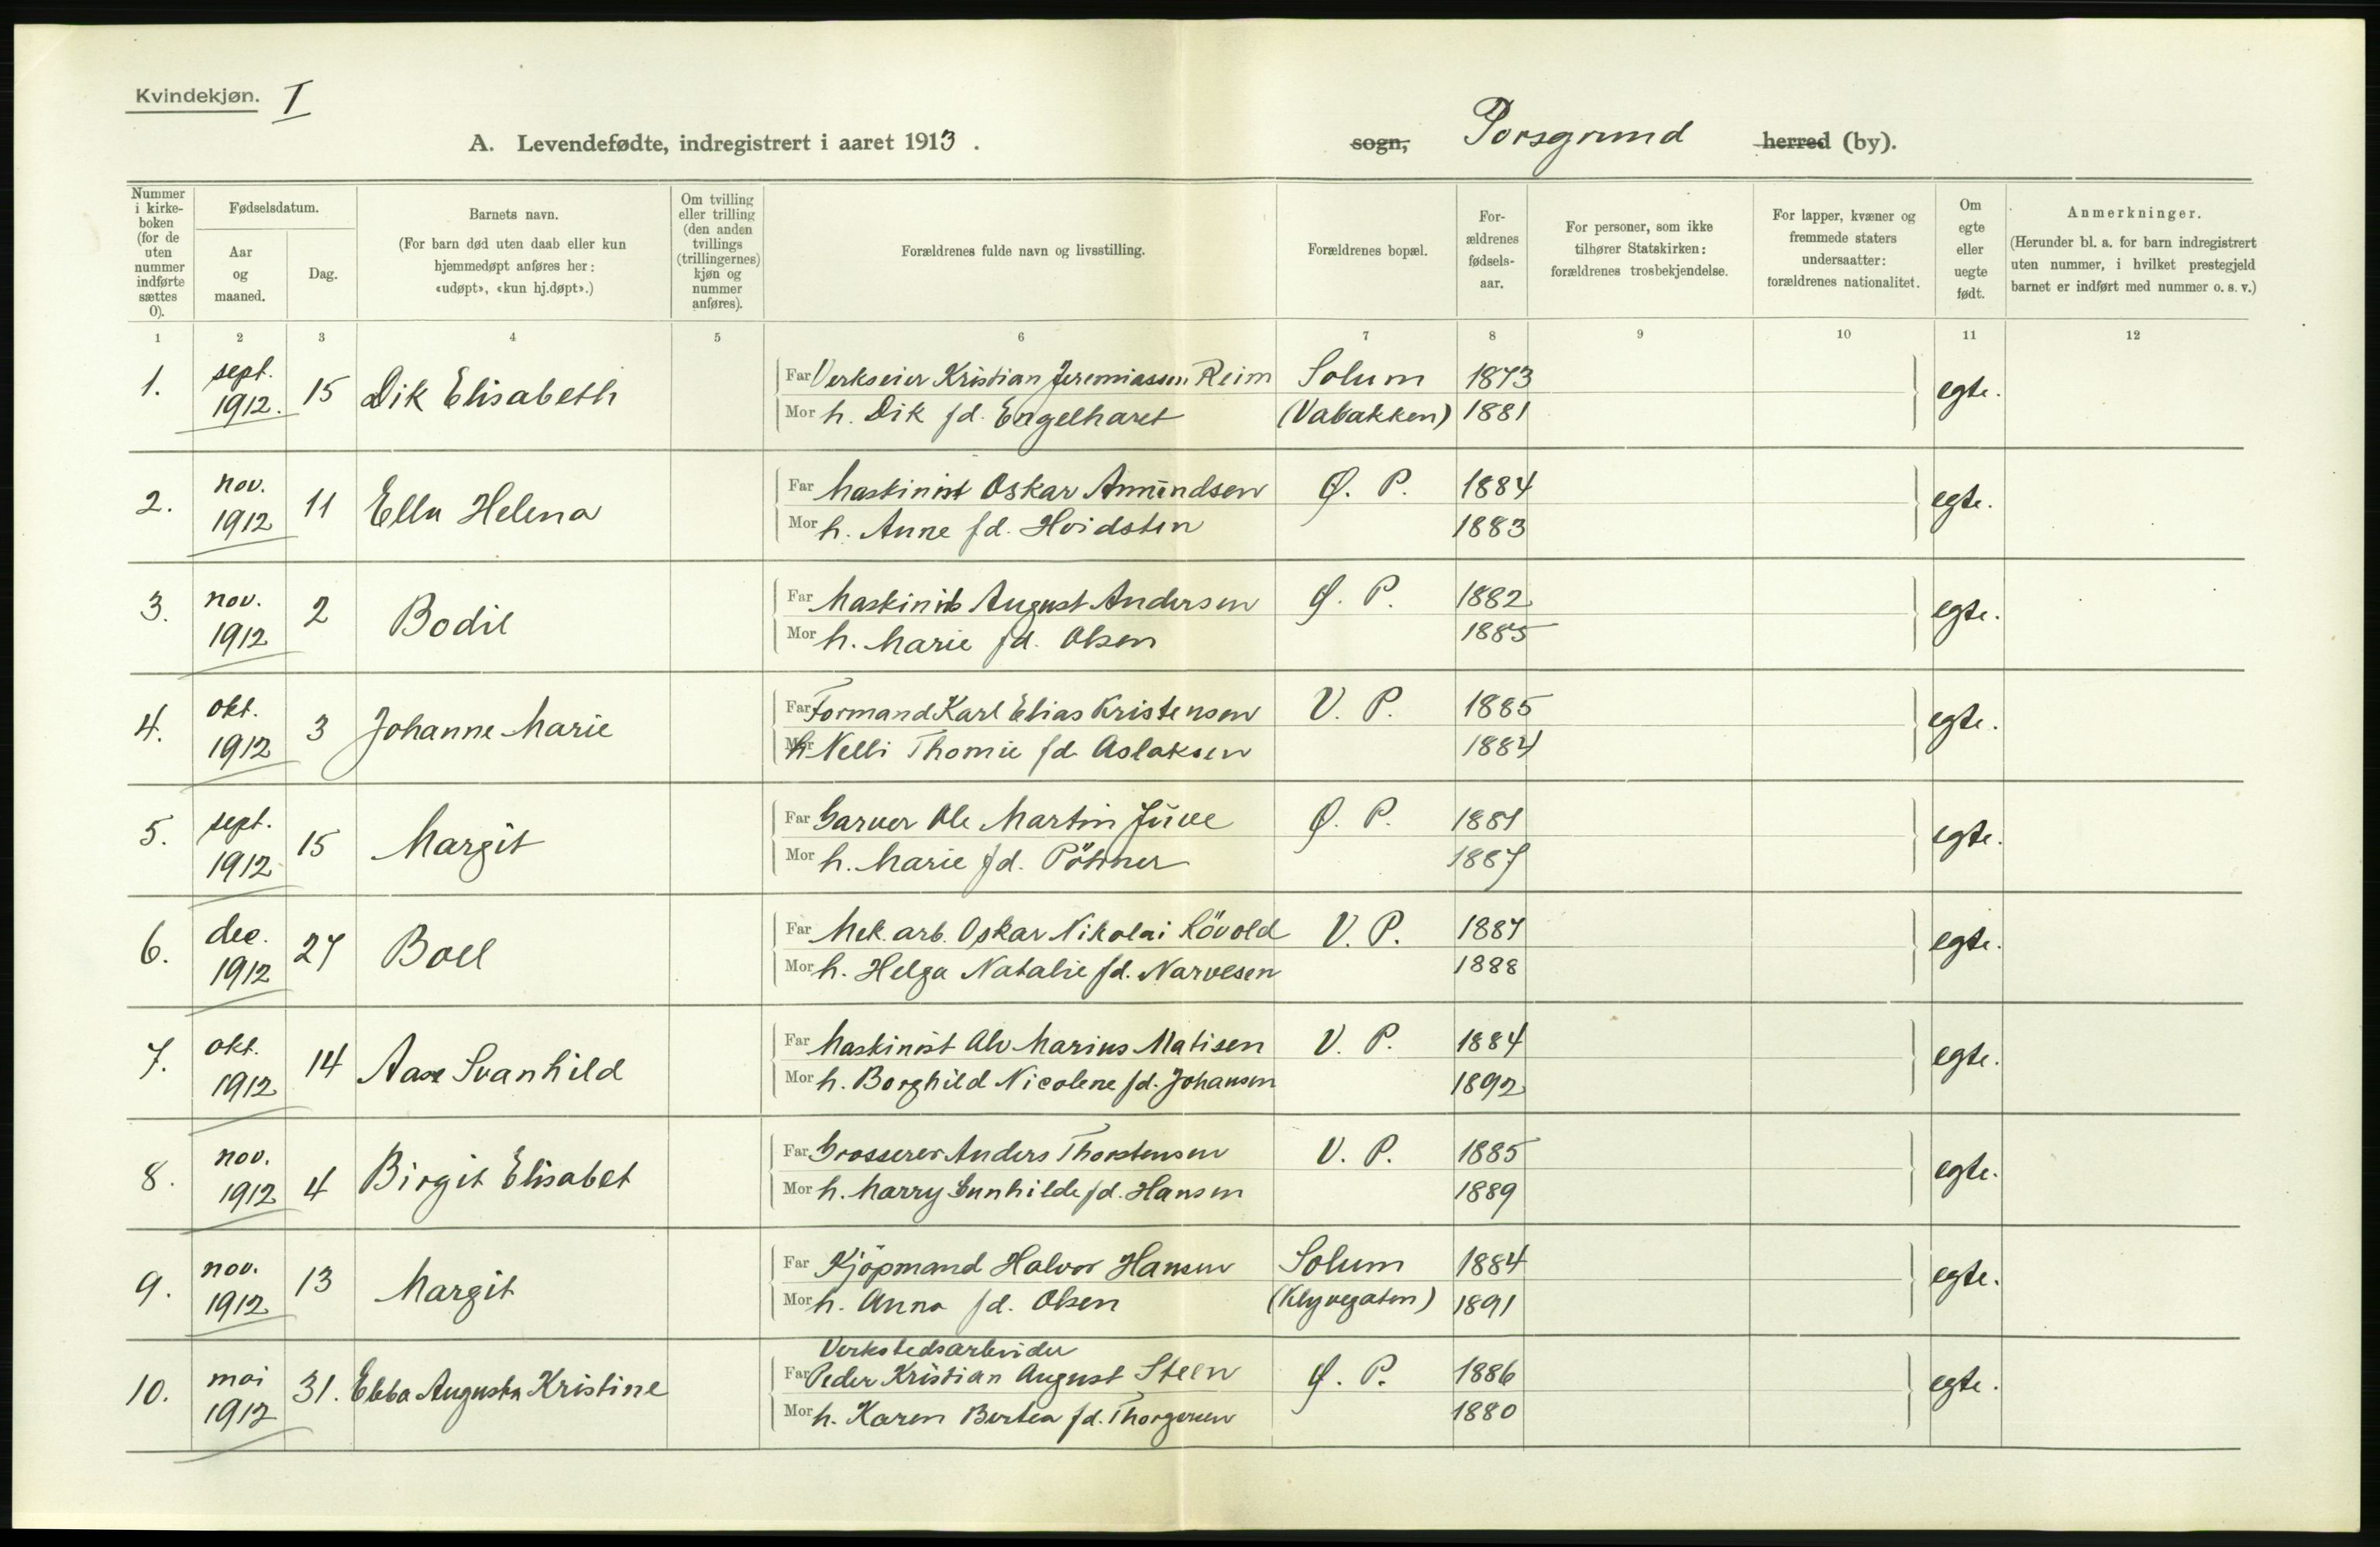 Kvindekjøn. I
A. Levendefødte, indregistrert i aaret 1913.
sogn, Porsgrund herred (by).
Nummer i kirkeboken (for de uten nummer indførte sættes 0).
Fødselsdatum.
Aar og maaned.
Dag.
Barnets navn.
(For barn død uten daab eller kun hjemmedøpt anføres her: «udøpt», «kun hj.døpt».)
Om tvilling eller trilling (den anden tvillings (trillingernes) kjøn og nummer anføres).
Forældrenes fulde navn og livsstilling.
Forældrenes bopæl.
Forældrenes fødselsaar.
For personer, som ikke tilhører Statskirken: forældrenes trosbekjendelse.
For lapper, kvæner og fremmede staters undersaatter: forældrenes nationalitet.
Om egte eller uegte født.
Anmerkninger.
(Herunder bl. a. for barn indregistrert uten nummer, i hvilket prestegjeld barnet er indført med nummer o. s. v.)
1 2 3 4 5 6 7 8 9 10 11 12
1. sept. 1912. 15 Dik Elisabeth
Far Verkseier Kristian Jeremiassen Reim Solum 1873 egte.
Mor h. Dik fd. Engelharet (Vabakken) 1881
2. nov. 1912 11 Ella Helena
Far Maskinist Oskar Amundsen Ø. P. 1884 egte.
Mor h. Anne fd. Hvidsten 1883
3. nov. 1912 2 Bodil
Far Maskinist August Andersen Ø. P. 1882 egte.
Mor h. Marie fd. Olsen 1885
4. okt. 1912 3 Johanne Marie
Far Formand Karl Elias Kristensen V. P. 1885 egte.
Mor h. Nelli Thomie fd. Aslaksen 1884
5. sept. 1912 15 Margit
Far Garver Ole Martin Juve Ø. P. 1881 egte.
Mor h. Marie fd. 1887
6. dec. 1912 27 Boel
Far Mek. arb. Oskar Nikolai Lövold V. P. 1887 egte.
Mor h. Helga Natalie fd. Narvesen 1888
7. okt. 1912 14 Aase Svanhild
Far Maskinist Alv Marius Matisen V. P. 1884 egte.
Mor h. Borghild Nicolene fd. Johansen 1892
8. nov. 1912 4 Birgit Elisabet
Far Grosserer Anders Thorstensen V. P. 1885 egte.
Mor h. Marry Gunhilde fd. Hansen 1889
9. nov. 1912 13 Margit
Far Kjöpmand Halvor Hansen Solum 1884 egte.
Mor h. Anna fd. Olsen (Klyvegaten) 1891
10. mai 1912 31. Ebba Augusta Kristine
Verkstedsarbeider
Far Peder Kristian August Steen Ø. P. 1886 egte.
Mor h. Karen Bertea fd. Thorgersen 1880